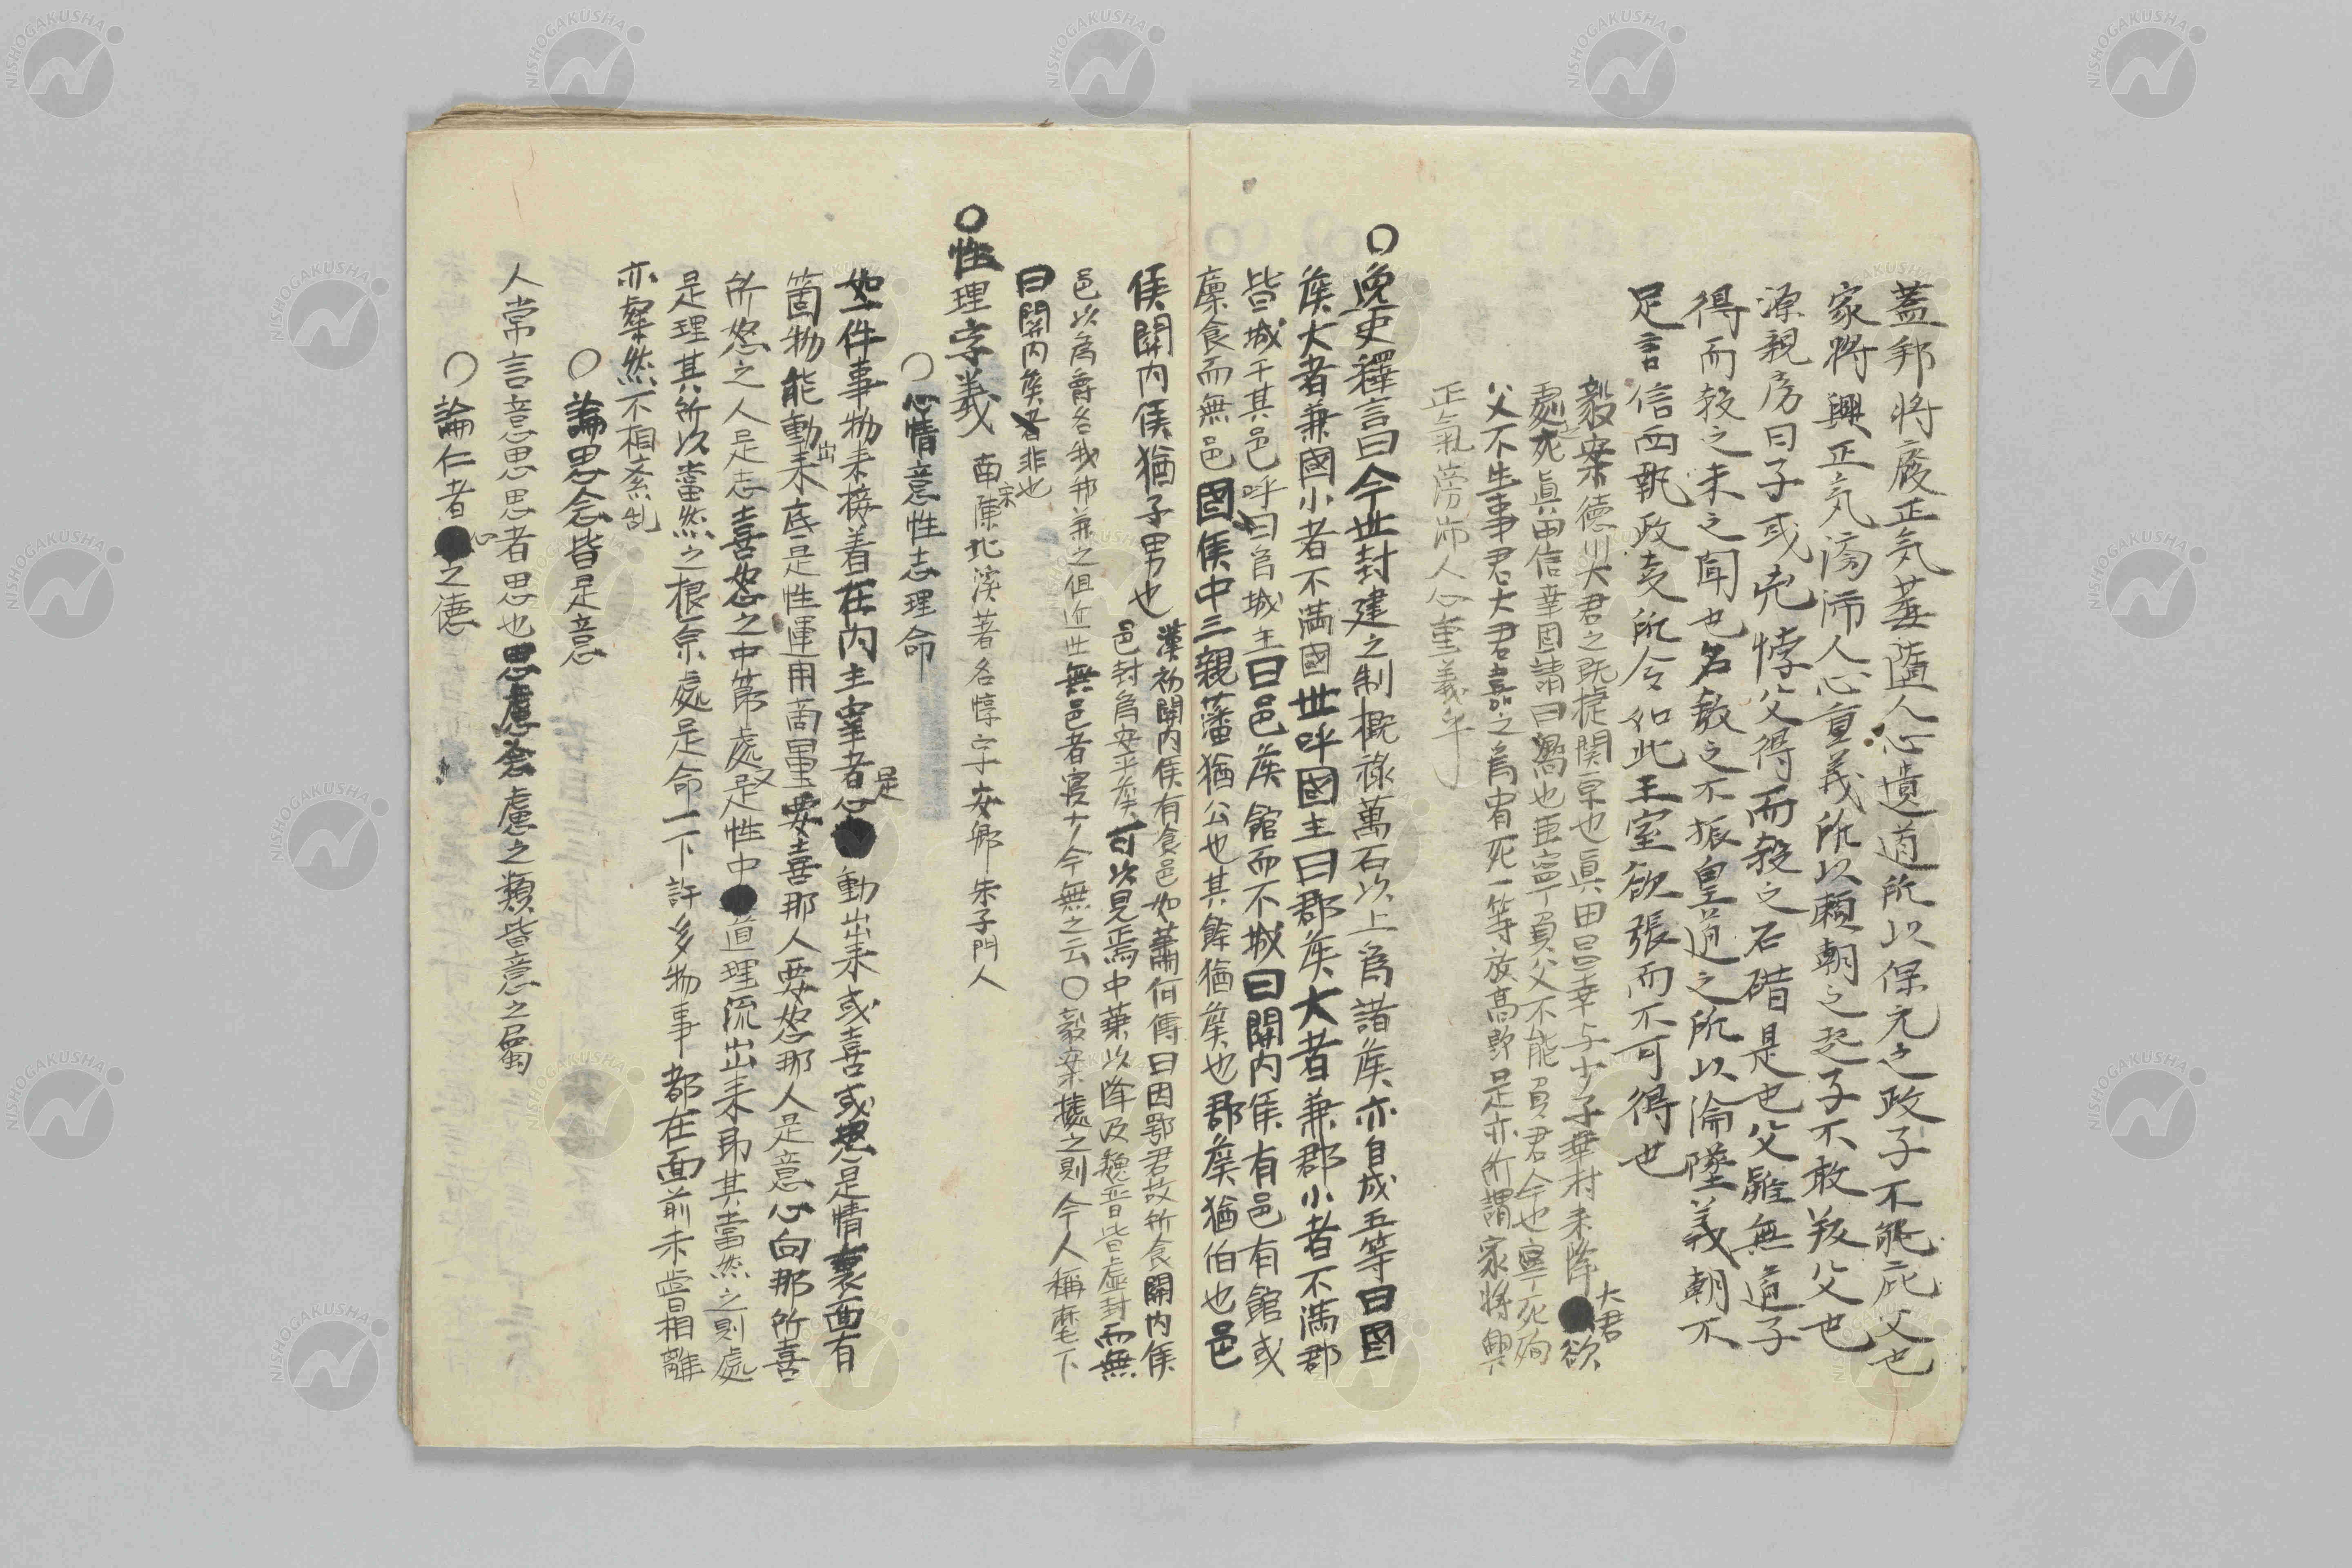 蓋邦将廢正気萎隨人心遺道所以保元之政子不能庇父也
家将興正気滂沛人心重義所以頼朝之起子不敢叛父也
源親房曰子或兇悖父得而殺之石碏是也父雖無道子
得而殺之未之聞也名教之不振皇道之所以淪墜義朝不
足言信西執政支所令如此王室欲張而不可得也
毅案徳川大君之既捷関原也真田昌幸与少子幸村来降大君欲
處死真田信幸固請曰臣也臣寧負父不能負君今也寧死殉
父不生事君大君嘉之為宥死一等放高野是亦所謂家将興
正氣滂沛人心重義乎
〇逸史釋言曰今世封建之制概祿萬石以上爲諸矦亦自成五等曰國
矦大者兼國小者不満國世呼國主曰郡矦大者兼郡小者不満郡
皆城于其邑呼曰爲城主曰邑矦館而不城曰關内侯有邑有館或
廩食而無邑國侯中三親藩猶公也其餘猶矦也郡矦猶伯也邑
侯關内侯猶子男也 漢初關内侯有食邑如蕭何傳曰因鄂君故所食關内侯
邑封爲安平矦可以見焉中葉以降及魏晋皆虚封而無
邑以爲爵名我邦兼之但近世無邑者寔古今無之云〇毅案據之則今人稱麾下
曰關内矦者非也
〇性理字義 南宋陳北溪著名惇字安卿朱子門人
〇心情意性志理命
如一件事物来接着在内主宰者是心動出来或喜或怒是情裏面有
箇物能動出来底是性運用商量要喜那人要怒那人是意心向那所喜
所怒之人是志喜怒之中節處又是性中道理流出来即其當然之則處
是理其所以當然之根原處是命一下許多物事都在面前未嘗相離
亦粲然不相紊乱
〇論思念皆是意
人常言意思思者思也思慮念慮之類皆意之屬
〇論仁者心之徳